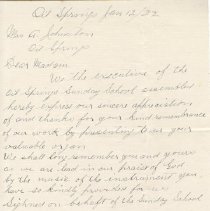 Oil Springs Jan 12/22
Mrs A. Johnston
Oil Springs
Dear Madam
We the executive of the
Oil Springs Sunday School assembled
hereby express our sincere appreciation
of and thanks for your kind remembrance
of our work by presenting to us your
valuable organ.
We shall long remember you and yours
as we are lead in our praise of God
by the music of the instrument you
have so kindly provided for us
Signed on behalf of the Sunday School